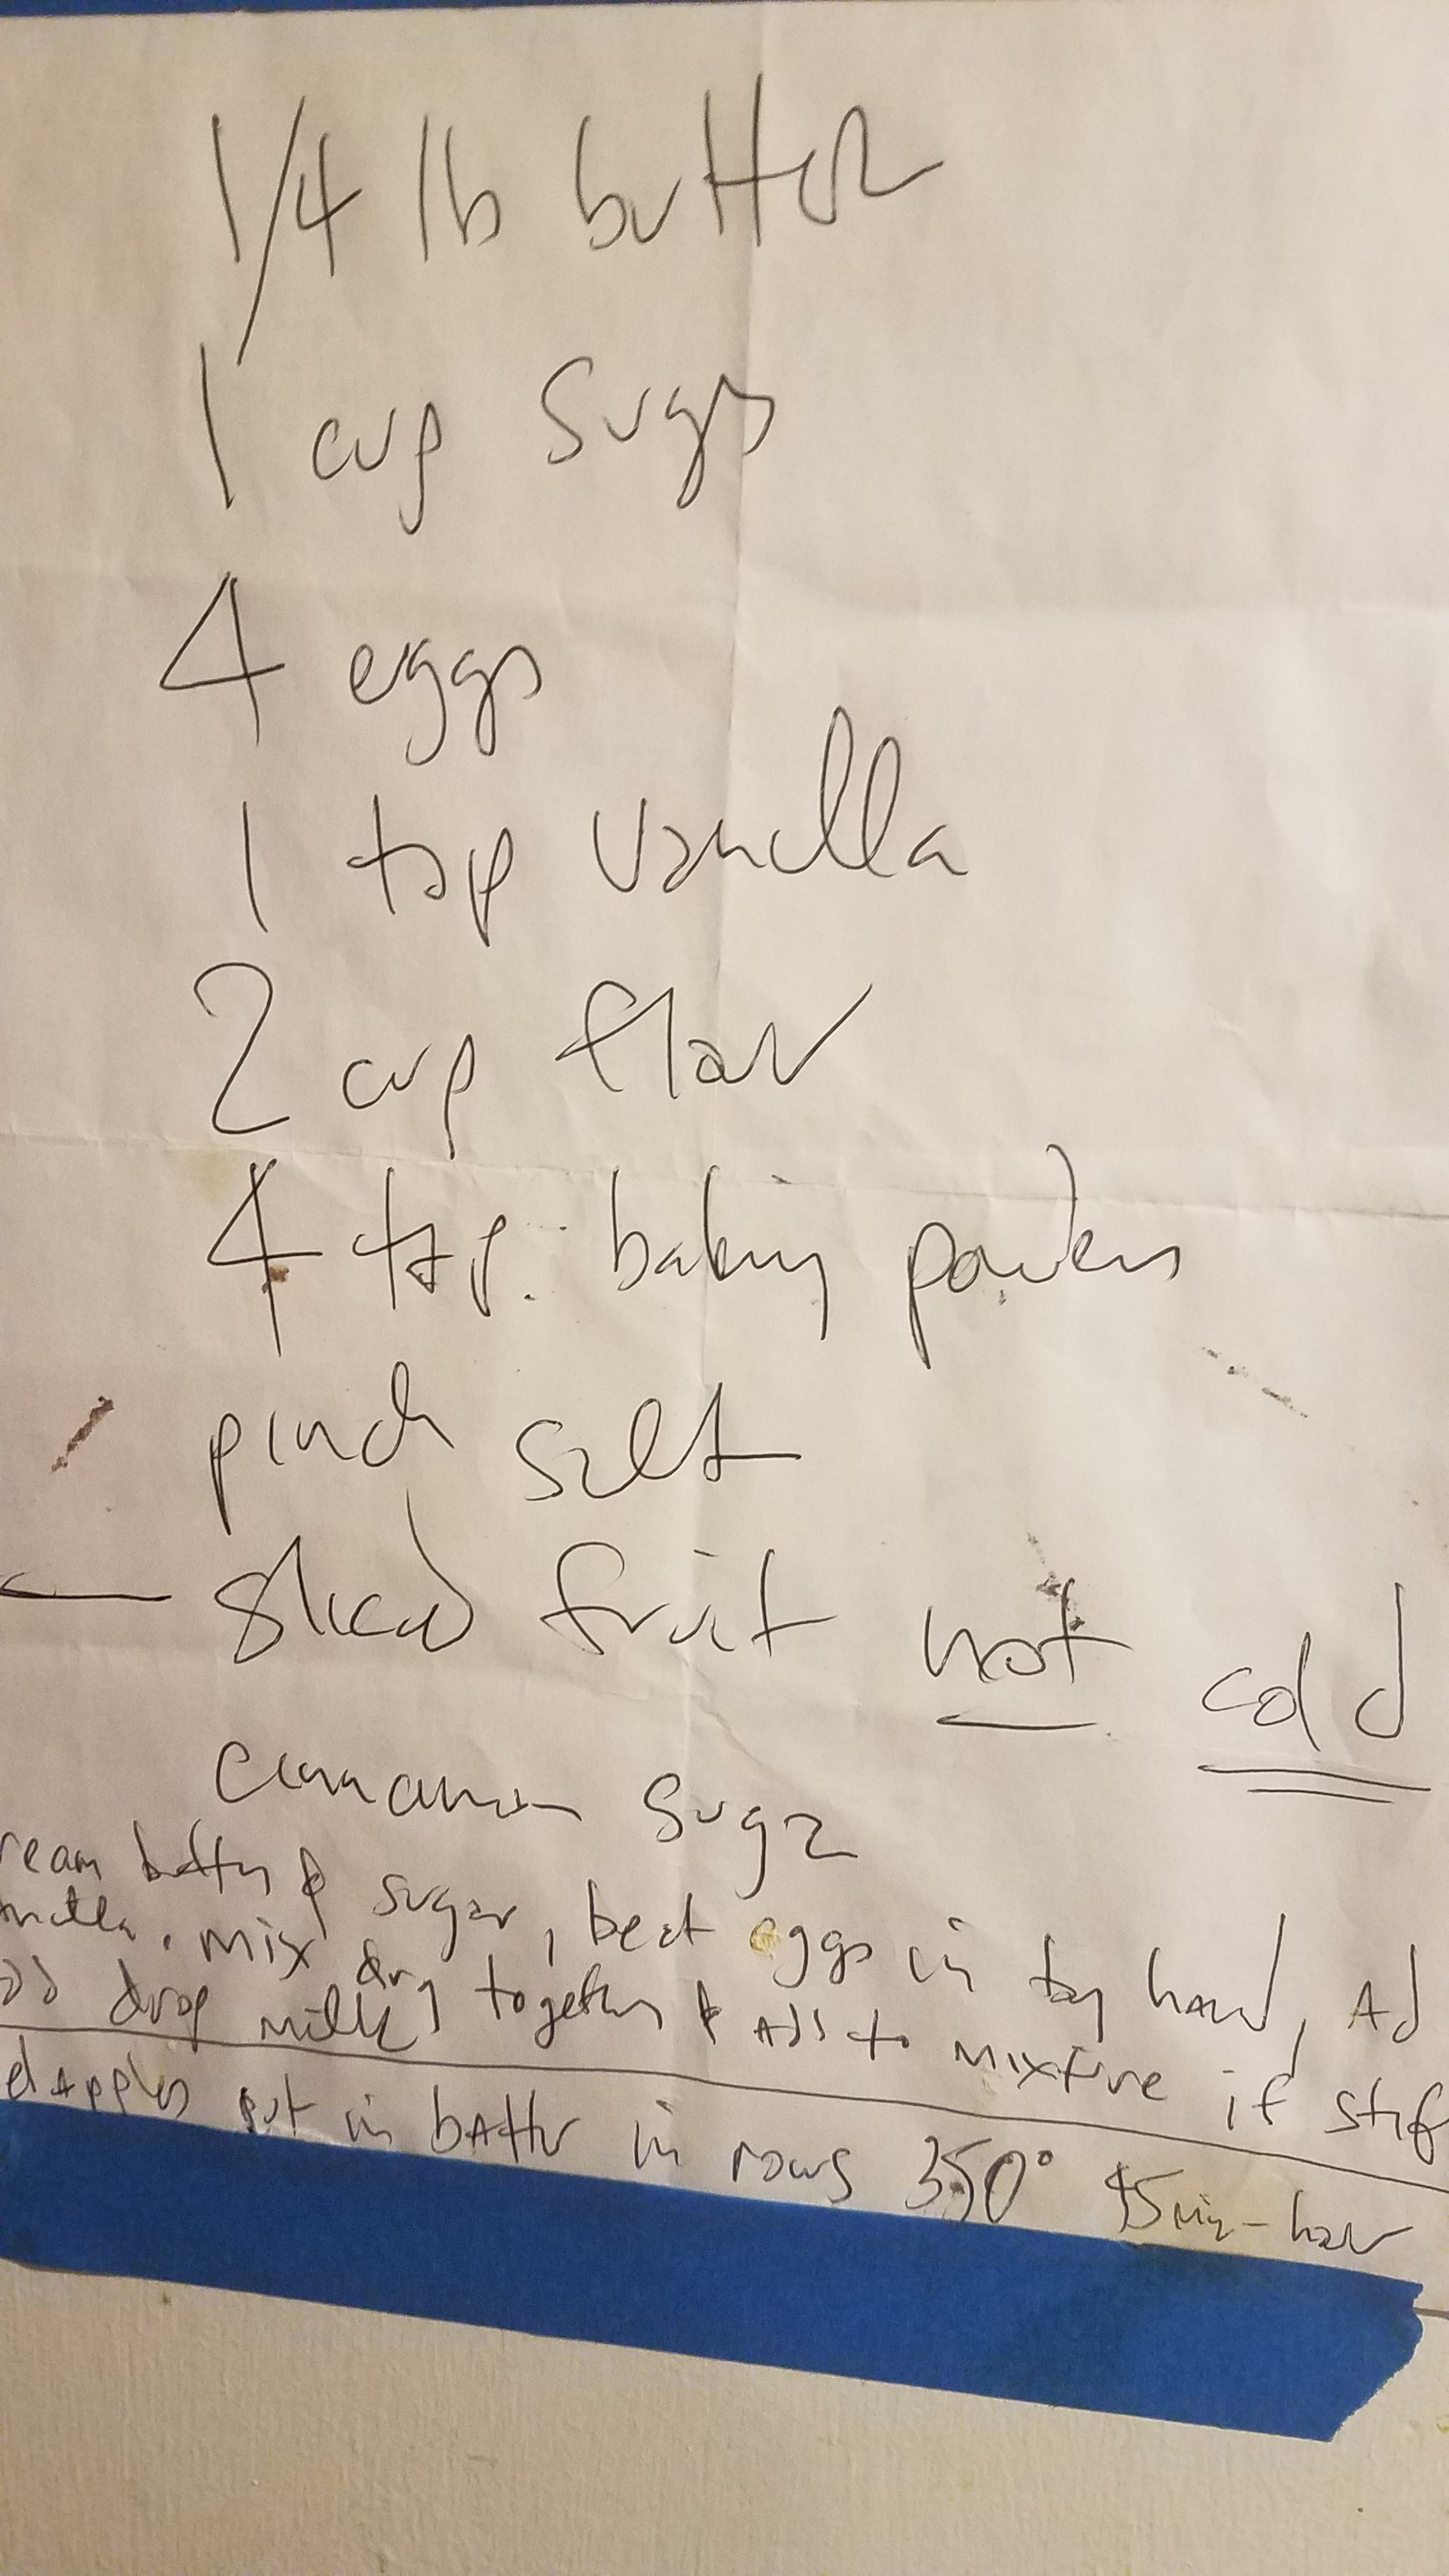 1/4 lb butter
1 cup sugar
4 eggs
1 tsp vanilla
2 cup flour
4 tsp. baking powder
pinch salt
sliced fruit not cold
cinnamon sugar
ream butter & sugar, beat eggs in by hand, Ad
nilla. mix dry together & Add to mixture if stif
dd drop milk
ed apples put in batter in rows 350° 45min - hour